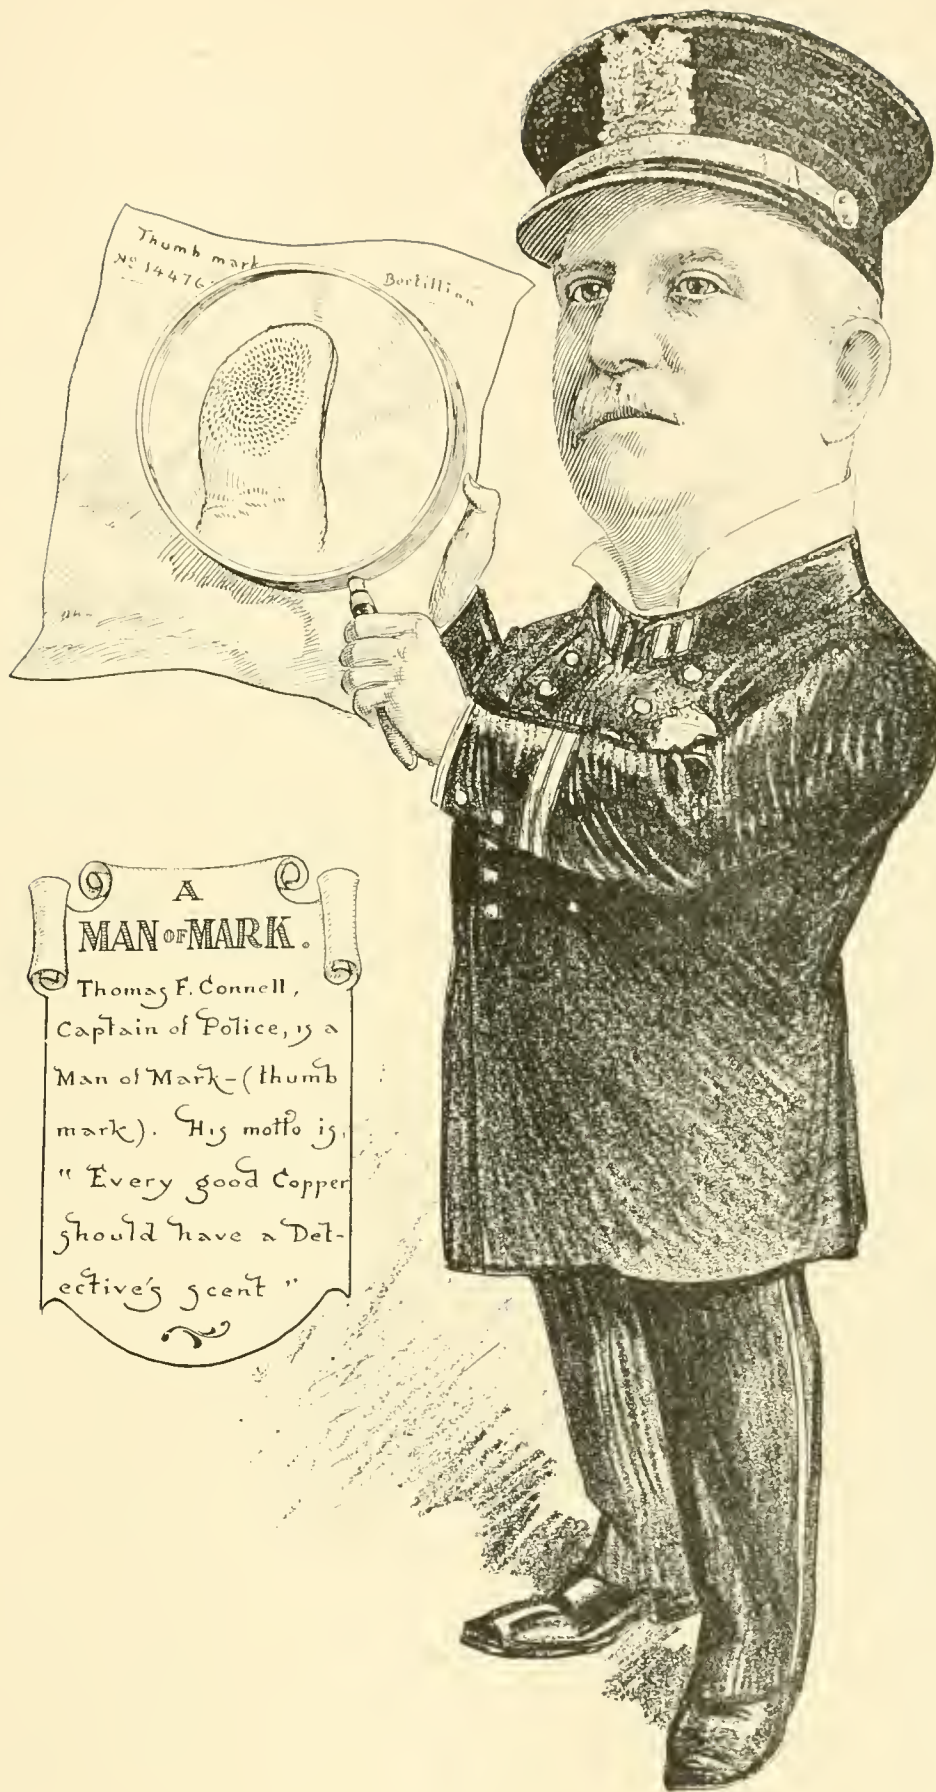 Thumb mark
No 14476
Bertillion
A
MAN OF MARK.
Thomas F. Connell,
Captain of Police, is a
Man of Mark-(thumb
mark). His motto is,
" Every good Copper
should have a Det-
ective's scent "